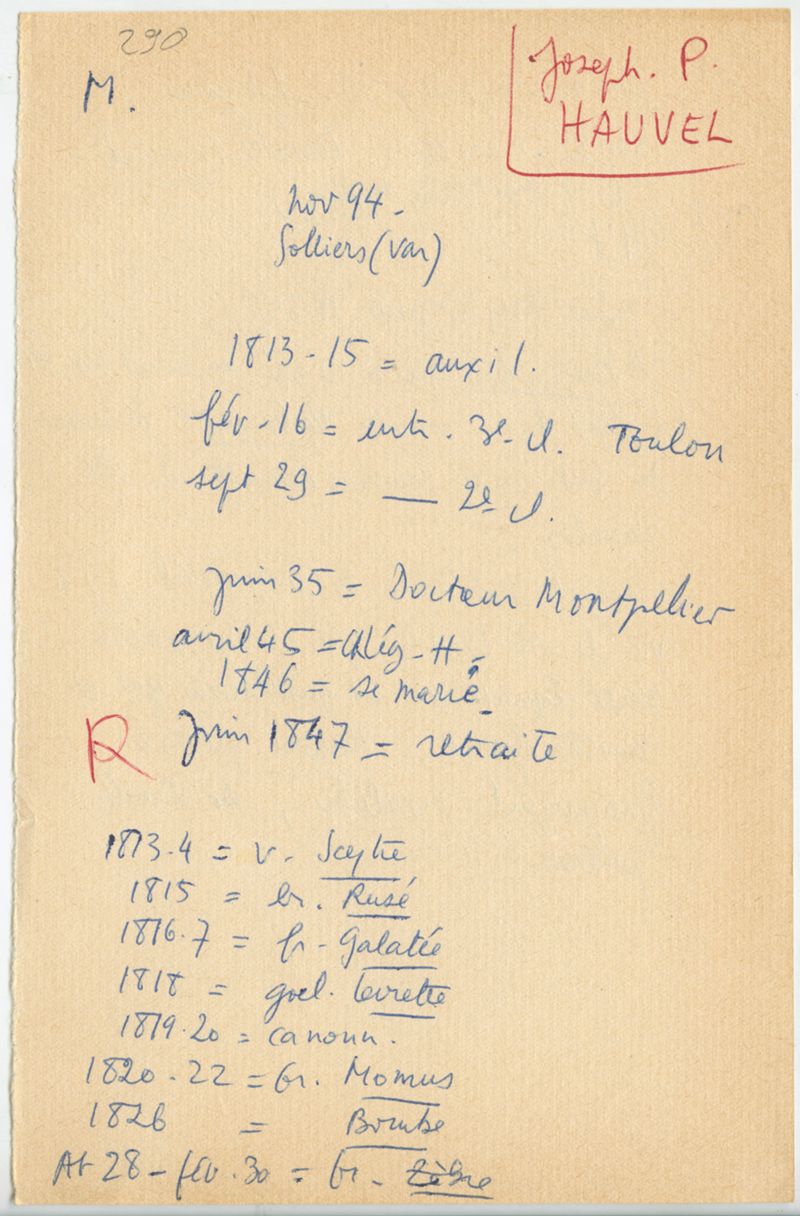 290
M.
Joseph. P.
HAUVEL
nov 94 -
Solliers (Var)
1813-15 = auxil.
fév - 16 = entr. 3e cl. Toulon
sept 29 = — 2e cl.
juin 35 = Docteur Montpellier
avril 45 = Ch Lég - H -
1846 = se marie -
R
juin 1847 = retraite
1813.4 = v. Sceptre
1815 = br. Rusé
1816.7 = fr - Galatée
1818 = goel. Levrette
1819.20 = canonn.
1820.22 = br. Momus
1826 = Bombe
At 28 - fév. 30 = br - Zèbre